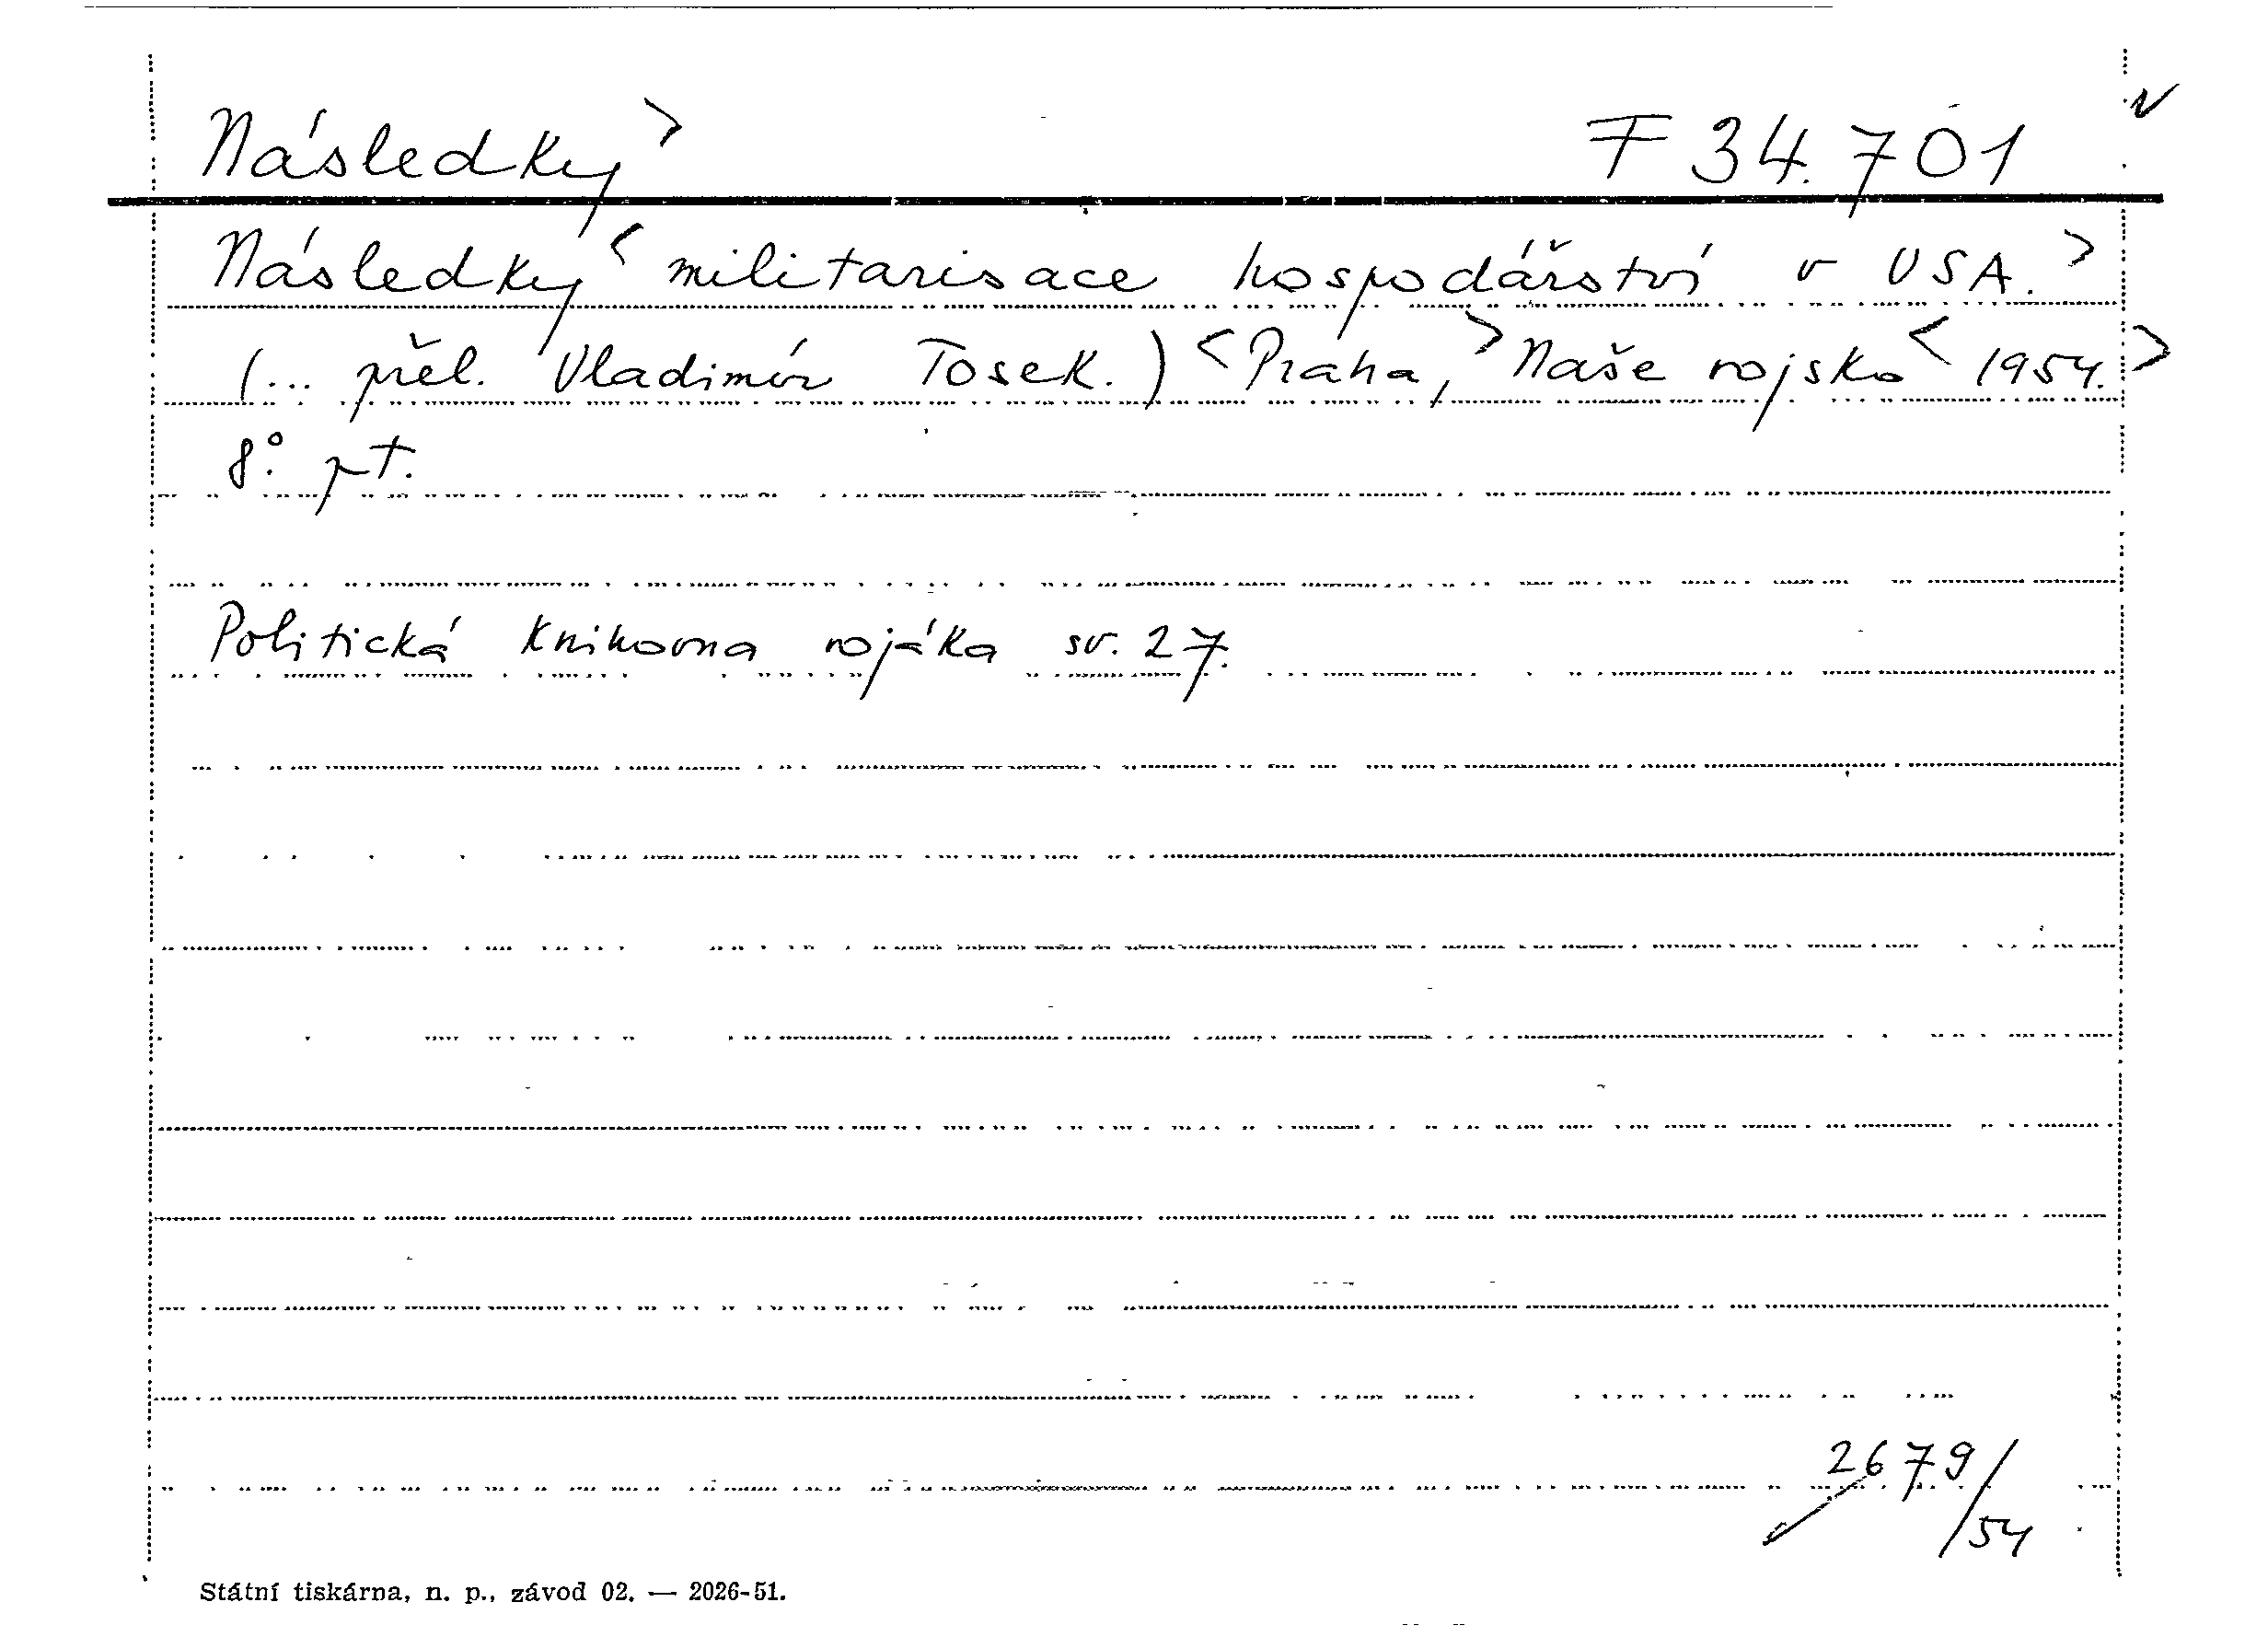 Následky> F 34.701
Následky< militarisace hospodářství v USA.>
(... přel. Vladimír Tosek.) <Praha,> Naše vojsko< 1954.>
8°. pt.
Politická knihovna vojáka sv. 27.
2679/54
Státní tiskárna, n. p., závod 02. — 2026-51.